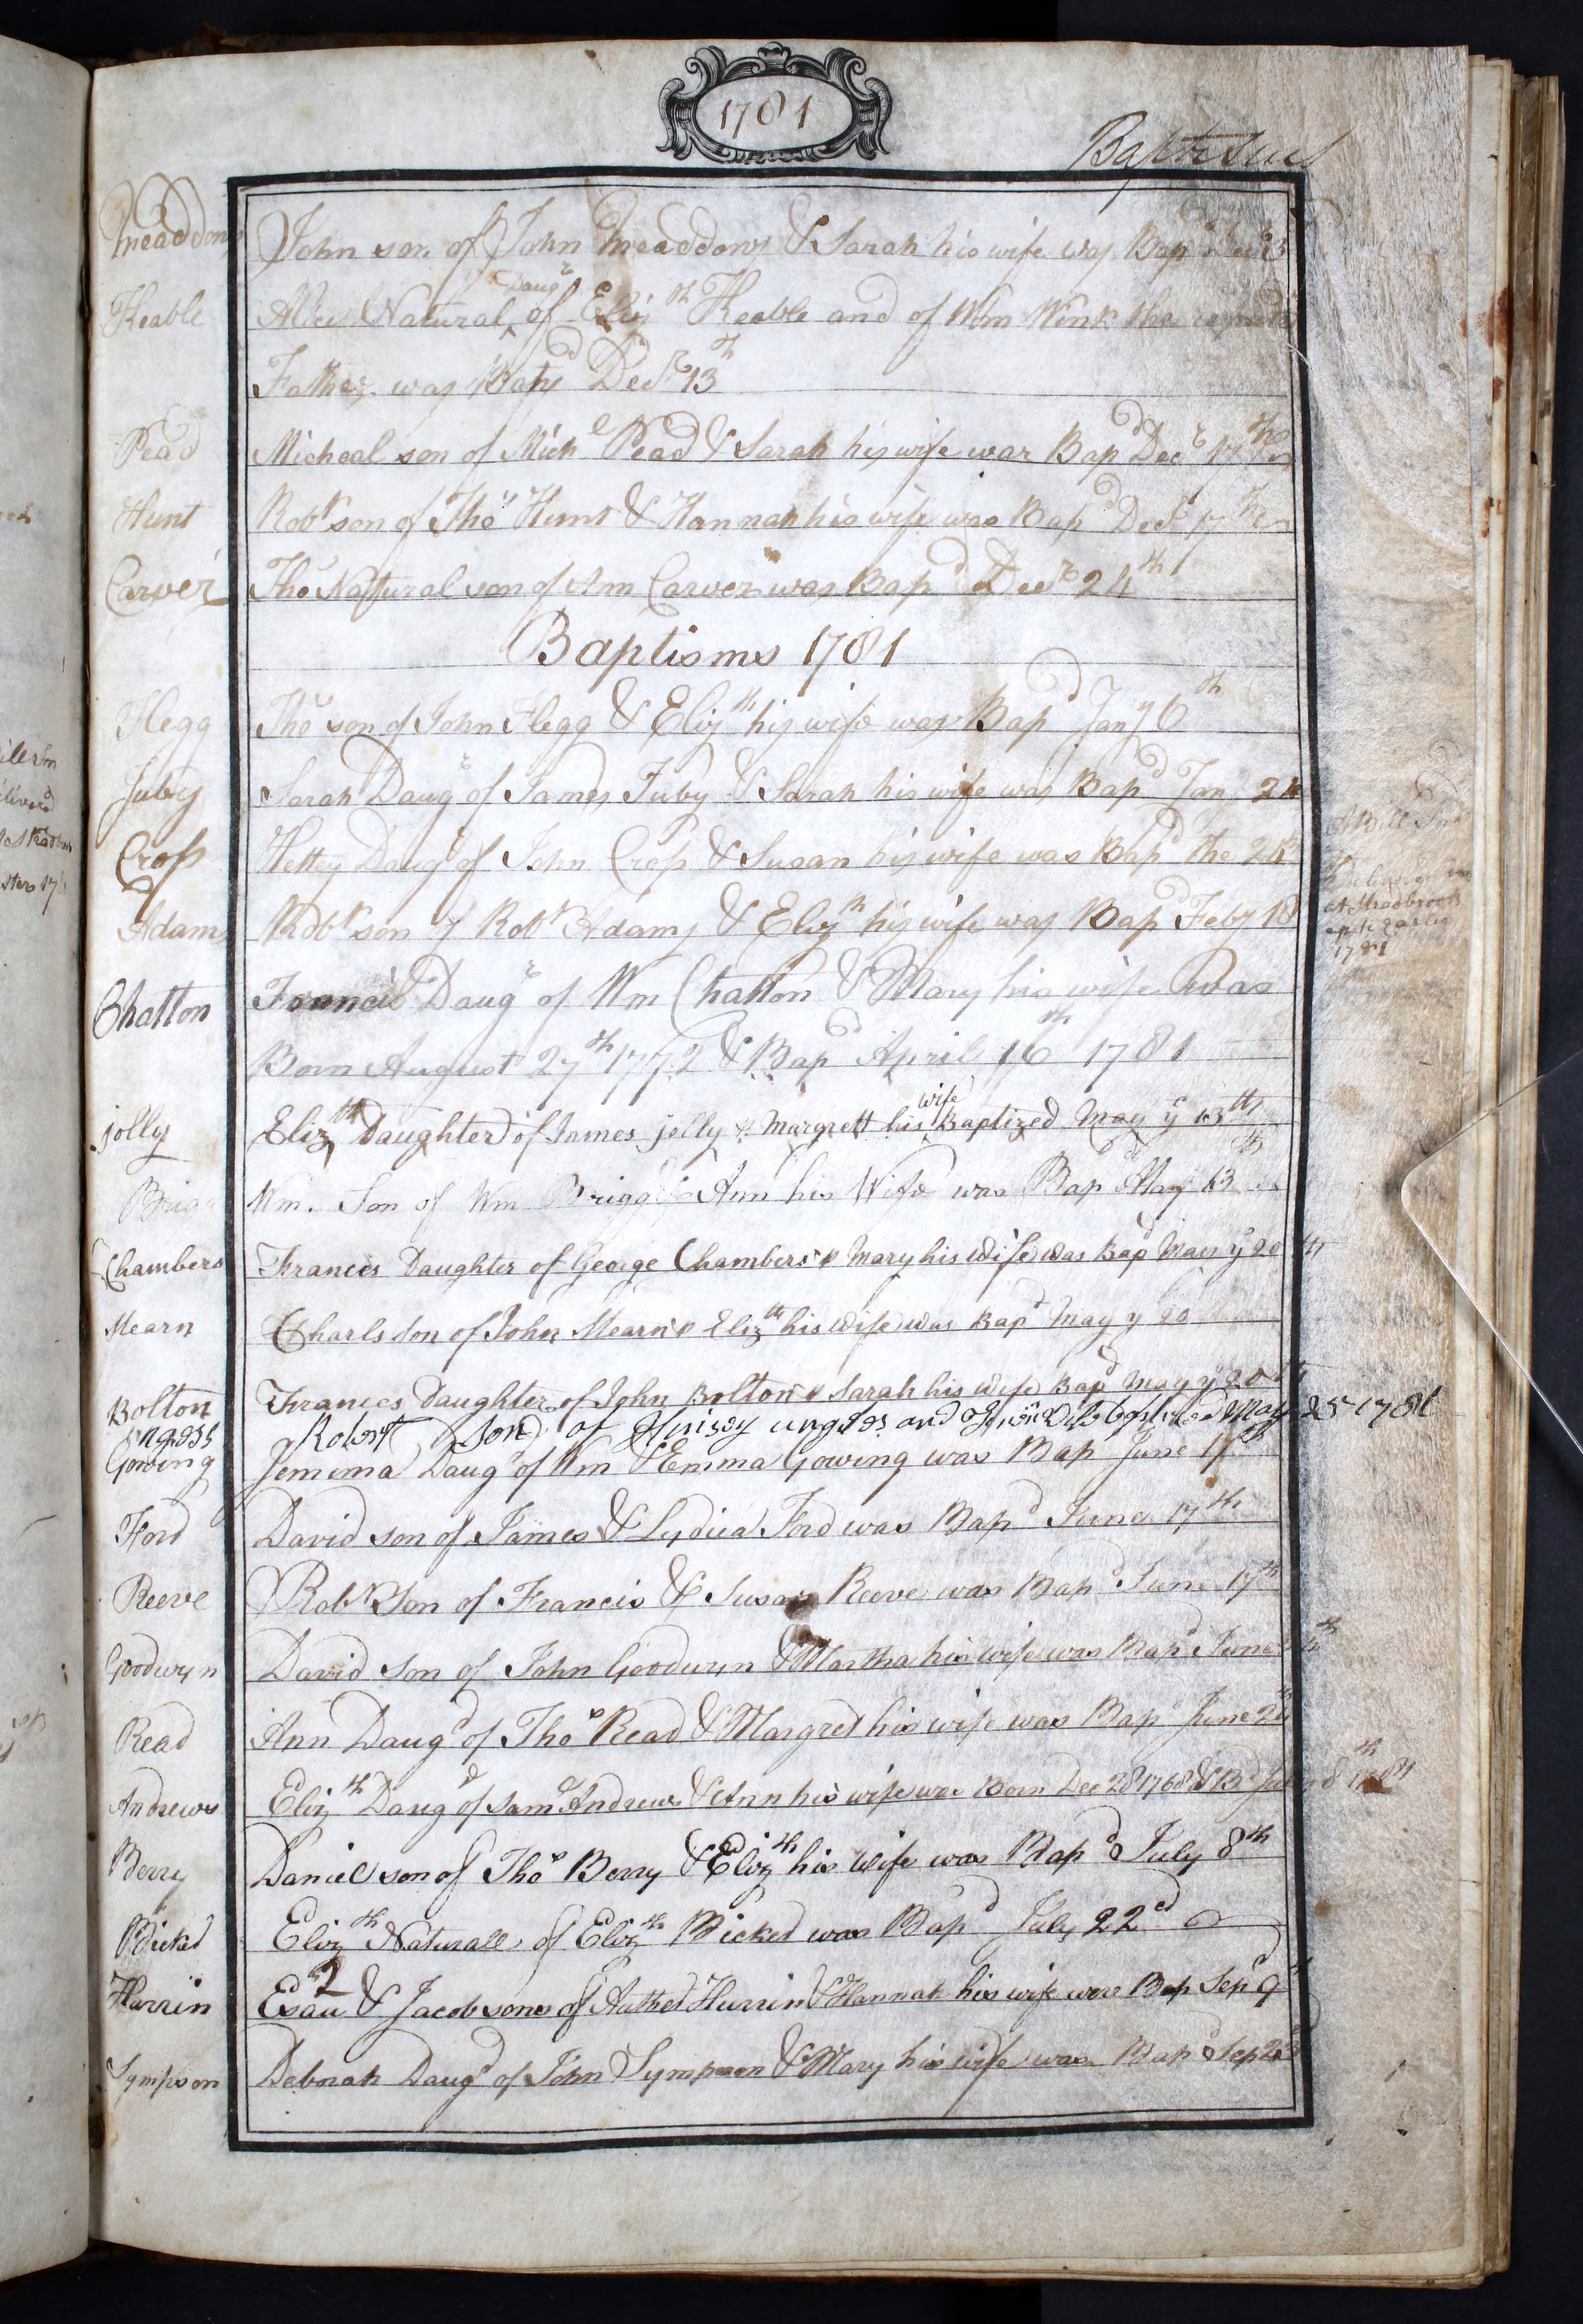 1781
Baptisms
Meaddows John son of John Meaddows & Sarah his wife was Bapd Decr 3
Daugr
Keable Alice Natural of Elizth Keable and of Wm Wink the reputed
Father was Bapd Decr 13th
Pead Micheal son of Michl Pead & Sarah his wife was Bapd Decr 17th
Hunt Robt son of Thos Hunt & Hannah his wife was Bapd Decr 17th
Carver Thos Natural son of Ann Carver was Bapd Decr 24th
Baptisms 1781
Flegg Thos son of John Flegg & Elizth his wife was Bapd Jany 6th
Juby Sarah Daugr of James Juby & Sarah his wife was Bapd Jany 24
Cross Hettey Daugr of John Cross & Susan his wife was Bapd the 24th
Adams Robt son of Robt Adams & Elizth his wife was Bapd Feby 18
A Bill
at Stradbrook
1781
Chatton Daugr of Wm Chatton & Mary his wife was
Born August 27th 1772 & Bapd April 16th 1781
wife
jolly Elizth Daughter of James jolly & Margrett his Baptized May ye 13th
Brigg Wm. Son of Wm Brigg & Ann his Wife was Bapd May 13th
Chambers Frances Daughter of George Chambers & Mary his wife was Bapd May ye 20th
Mearn Charls son of John Mearn & Elizth his wife was Bapd May ye 20
Bolton Frances Daughter of John Bolton & Sarah his wife Bapd May ye 20th
Robert son of and May 25 1781
Gowing Jemima Daugr of Wm & Emma Gowing was Bap June 17th
Ford David son of James & Lydiea Ford was Bapd June 17th
Reeve Robt Son of Francis & Susan Reeve was Bapd June 17th
Goodwyn David Son of John Goodwyn & Martha his wife was Bapd June 24th
Read Ann Daugd of Thos Read & Margret his wife was Bapd June 24
Andrews Elizth Daugd of Saml Andrews & Ann his wife was Born Dec 28 1768 & Bd July 8th 1781
Berry Daniel son of Thos Berry & Elizth his wife was Bapd July 8th
Bicket Elizth Naturall of Elizth Bicket was Bapd July 22d
2
Hurrin Esau & Jacob sons of Hurrin & Hannah his wife were Bap Sepr 9
Sympson Deborah Daugd of John Sympson & Mary his wife was Bapd Sep 23